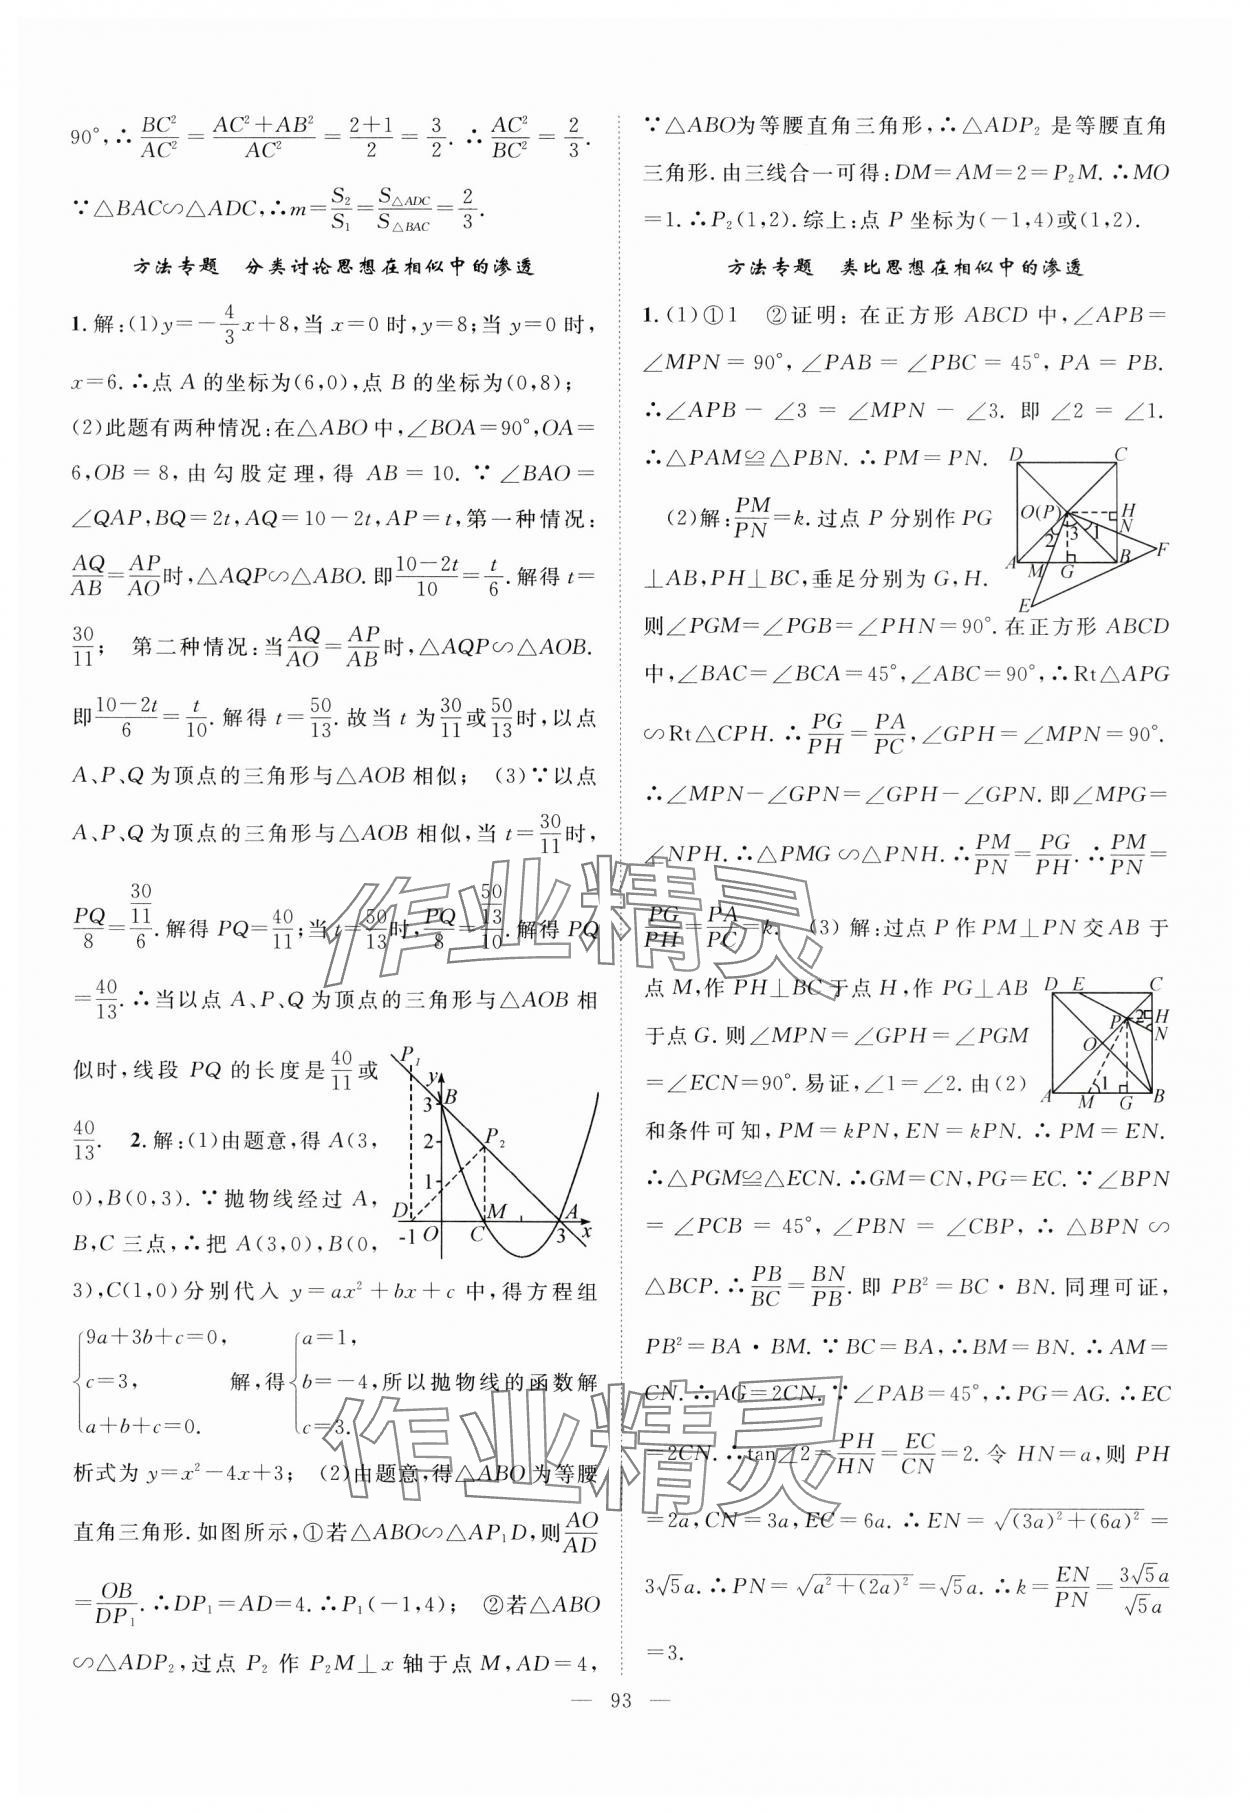 90°,∴BC²/AC²=(AC²+AB²)/AC²=(2+1)/2=3/2.∴AC²/BC²=2/3.
∵△BAC∽△ADC,∴m=S₂/S₁=S△ADC/S△BAC=2/3.
方法专题　分类讨论思想在相似中的渗透
1.解:(1)y=-4/3x+8,当x=0时,y=8;当y=0时,
x=6.∴点A的坐标为(6,0),点B的坐标为(0,8);
(2)此题有两种情况:在△ABO中,∠BOA=90°,OA=
6,OB=8,由勾股定理,得AB=10.∵∠BAO=
∠QAP,BQ=2t,AQ=10-2t,AP=t,第一种情况:
AQ/AB=AP/AO时,△AQP∽△ABO.即(10-2t)/10=t/6.解得t=
30/11;　第二种情况:当AQ/AO=AP/AB时,△AQP∽△AOB.
即(10-2t)/6=t/10.解得t=50/13.故当t为30/11或50/13时,以点
A、P、Q为顶点的三角形与△AOB相似;　(3)∵以点
A、P、Q为顶点的三角形与△AOB相似,当t=30/11时,
PQ/8=(30/11)/6.解得PQ=40/11;当t=50/13时,PQ/8=(50/13)/10.解得PQ
=40/13.∴当以点A、P、Q为顶点的三角形与△AOB相
似时,线段PQ的长度是40/11或
40/13.　2.解:(1)由题意,得A(3,
0),B(0,3).∵抛物线经过A,
B,C三点,∴把A(3,0),B(0,
3),C(1,0)分别代入y=ax²+bx+c中,得方程组
{9a+3b+c=0,　{a=1,
c=3,　解,得　b=-4,所以抛物线的函数解
a+b+c=0.　c=3.
析式为y=x²-4x+3;　(2)由题意,得△ABO为等腰
直角三角形.如图所示,①若△ABO∽△AP₁D,则AO/AD
=OB/DP₁.∴DP₁=AD=4.∴P₁(-1,4);　②若△ABO
∽△ADP₂,过点P₂作P₂M⊥x轴于点M,AD=4,
P₁
y
3 B
2 P₂
1
D M A
-1 O C 3 x
∵△ABO为等腰直角三角形,∴△ADP₂是等腰直角
三角形.由三线合一可得:DM=AM=2=P₂M.∴MO
=1.∴P₂(1,2).综上:点P坐标为(-1,4)或(1,2).
方法专题　类比思想在相似中的渗透
1.(1)①1　②证明:在正方形ABCD中,∠APB=
∠MPN=90°,∠PAB=∠PBC=45°,PA=PB.
∴∠APB-∠3=∠MPN-∠3.即∠2=∠1.
∴△PAM≌△PBN.∴PM=PN.
(2)解:PM/PN=k.过点P分别作PG
⊥AB,PH⊥BC,垂足分别为G,H.
D C
O(P) H
N
2 3 1
A M G B F
E
则∠PGM=∠PGB=∠PHN=90°.在正方形ABCD
中,∠BAC=∠BCA=45°,∠ABC=90°,∴Rt△APG
∽Rt△CPH.∴PG/PH=PA/PC,∠GPH=∠MPN=90°.
∴∠MPN-∠GPN=∠GPH-∠GPN.即∠MPG=
∠NPH.∴△PMG∽△PNH.∴PM/PN=PG/PH.∴PM/PN=
PG/PH=PA/PC=k.　(3)解:过点P作PM⊥PN交AB于
点M,作PH⊥BC于点H,作PG⊥AB
于点G.则∠MPN=∠GPH=∠PGM
=∠ECN=90°.易证,∠1=∠2.由(2)
D E C
P 2 H
N
O
1
A M G B
和条件可知,PM=kPN,EN=kPN.∴PM=EN.
∴△PGM≌△ECN.∴GM=CN,PG=EC.∵∠BPN
=∠PCB=45°,∠PBN=∠CBP,∴△BPN∽
△BCP.∴PB/BC=BN/PB.即PB²=BC·BN.同理可证,
PB²=BA·BM.∵BC=BA,∴BM=BN.∴AM=
CN.∴AG=2CN.∵∠PAB=45°,∴PG=AG.∴EC
=2CN.∴tan∠2=PH/HN=EC/CN=2.令HN=a,则PH
=2a,CN=3a,EC=6a.∴EN=√((3a)²+(6a)²)=
3√5a.∴PN=√(a²+(2a)²)=√5a.∴k=EN/PN=3√5a/√5a
=3.
作业精灵
作业精灵
— 93 —